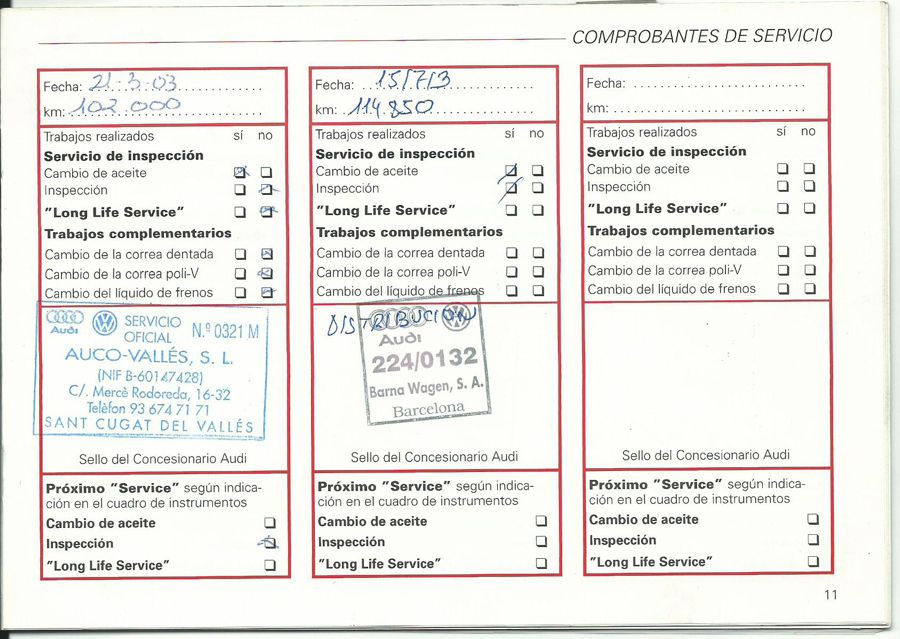 COMPROBANTES DE SERVICIO
Fecha: 21-3-03
km: 102.000
Trabajos realizados sí no
Servicio de inspección
Cambio de aceite
Inspección
"Long Life Service"
Trabajos complementarios
Cambio de la correa dentada
Cambio de la correa poli-V
Cambio del líquido de frenos
Audi
SERVICIO OFICIAL N.º 0321 M
AUCO-VALLÉS, S. L.
(NIF B-60147428)
C/. Mercè Rodoreda, 16-32
Telèfon 93 674 71 71
SANT CUGAT DEL VALLÉS
Sello del Concesionario Audi
Próximo "Service" según indica-
ción en el cuadro de instrumentos
Cambio de aceite
Inspección
"Long Life Service"
Fecha: 15/7/3
km: 114.850
Trabajos realizados sí no
Servicio de inspección
Cambio de aceite
Inspección
"Long Life Service"
Trabajos complementarios
Cambio de la correa dentada
Cambio de la correa poli-V
Cambio del líquido de frenos
DISTRIBUCION
Audi
224/0132
Barna Wagen, S. A.
Barcelona
Sello del Concesionario Audi
Próximo "Service" según indica-
ción en el cuadro de instrumentos
Cambio de aceite
Inspección
"Long Life Service"
Fecha:
km:
Trabajos realizados sí no
Servicio de inspección
Cambio de aceite
Inspección
"Long Life Service"
Trabajos complementarios
Cambio de la correa dentada
Cambio de la correa poli-V
Cambio del líquido de frenos
Sello del Concesionario Audi
Próximo "Service" según indica-
ción en el cuadro de instrumentos
Cambio de aceite
Inspección
"Long Life Service"
11